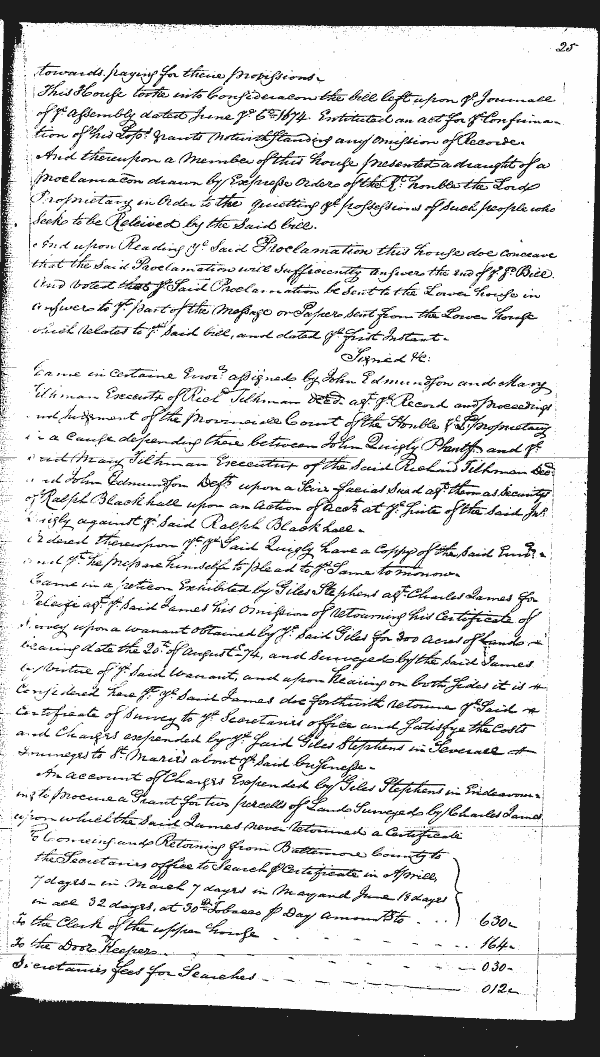 25
towards paying for theire provissions.
This House tooke into Consideracon the bill left upon yᵉ Journall
of yᵉ Assembly dated June yᵉ 6ᵗʰ 1674. Entituled an act for yᵉ Confirma-
tion of his Lspˢ grants notwithstanding any omission of Records.
And thereupon a Member of this house presented a draught of a
proclamacon drawn by Expresse Orders of the Rᵗ honble the Lord
Proprietary in Order to the quietting yᵉ possessions of such people who
seek to be Releived by the Said bill.
And upon Reading yᵉ Said Proclamation this house doe conceave
that the Said Proclamation will sufficiently answer the end of yᵉ sᵈ Bill
and voted that yᵉ Said Proclamation be sent to the Lower house in
answer to yᵗ part of the Message or Paper sent from the Lower house
which relates to yᵉ said bill, and dated yᵉ first Instant.
Signed &c:
Came in certaine Erroʳˢ assigned by John Edmundson and Mary
Tilhman Executx of Richᵈ Tilhman decd. agᵗ yᵉ Record and proceedings
and Judgment of the Provinciall Court of the Honble yᵉ Lᵈ Proprietary
in a cause depending there between John Quigly Plantff and yᵉ
said Mary Tilhman Executrix of the Said Richard Tilhman Decᵈ
and John Edmundson Defᵗˢ upon a Scire facias Sued agᵗ them as Security
of Ralph Blackhall upon an Action of accoᵗ at yᵉ suite of the Said Jnᵒ
Quigly against yᵉ Said Ralph Blackhall.
Ordered thereupon yᵗ yᵉ Said Quigly have a Coppy of the Said Erroʳˢ
and yᵗ he prepare himselfe to plead to yᵉ Same to morrow.
Came in a peticon Exhibited by Giles Stephens agᵗ Charles James for
Releife agᵗ yᵉ Said James his omission of retourning his Certificate of
Survey upon a warrant obtained by yᵉ Said Giles for 300 Acres of Land
bearing date the 20ᵗʰ of August -74, and Surveyed by the Said James
by virtue of yᵉ Said Warrant, and upon Hearing on both sides it is
Considered here yᵗ yᵉ Said James doe forthwith retourne yᵉ Said
Certificate of Survey to yᵉ Secretaries office and satisfye the Costs
and Charges expended by yᵉ Said Giles Stephens in Severall
Journeyes to Sᵗ Maries about yᵉ Said businesse.
An account of Charges Expended by Giles Stephens in Endeavour-
ing to procure a Grant for two parcells of Land Surveyed by Charles James
upon which the Said James never retourned a Certificate
To comeing and Retorning from Baltemore County to
the Secretaries office to Search yᵉ Certificate in Aprill
7 dayes - in March 7 dayes in May and June 18 dayes
in all 32 dayes, at 30ˡᵇ Tobacco ꝑ Day amounts to . . . 630-
To the Clerk of the upper house - - - - 164-
To the Door Keeper - - - - 030-
Secretaries fees for Searches - - - 012-